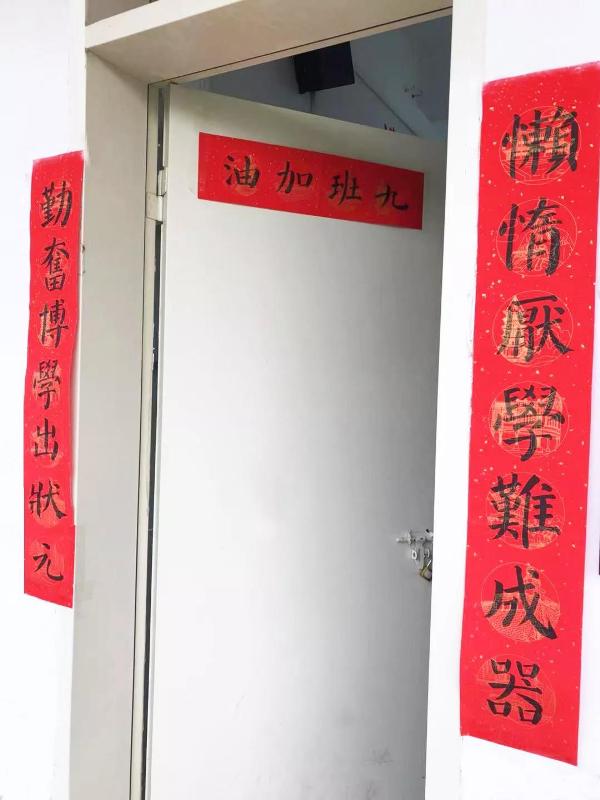 懶惰厭學難成器
勤奮博學出狀元
九班加油